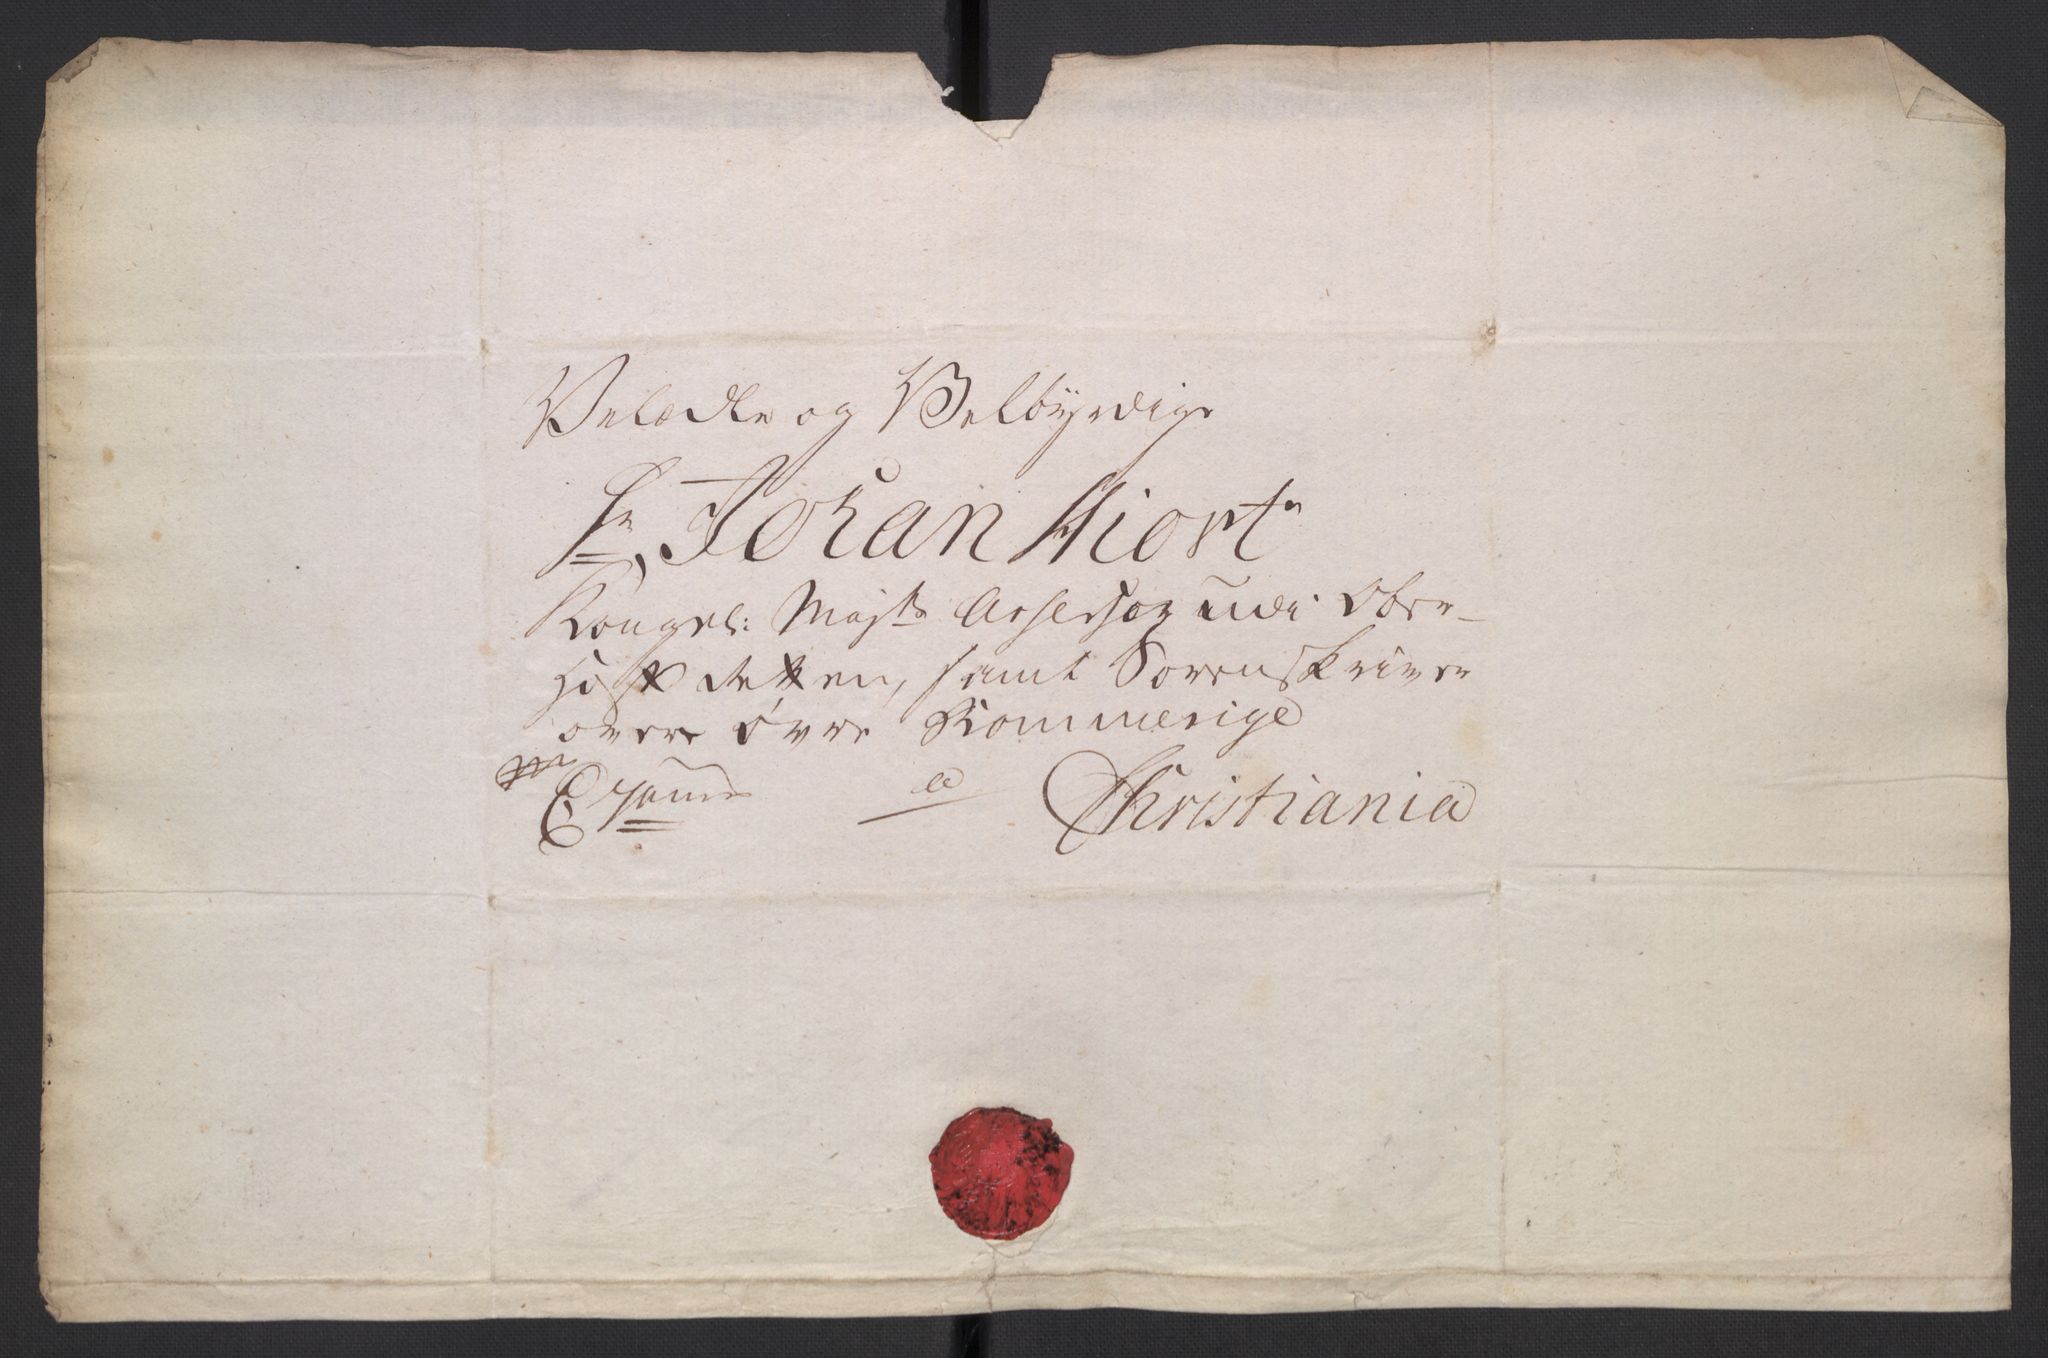 Velædle og Velbyrdige
Hr Johan Hiort
Kongel: Majts Assessor udi Ober-
Hoff Retten, samt Sorenskriver
over Øvre Rommerige
a Christiania